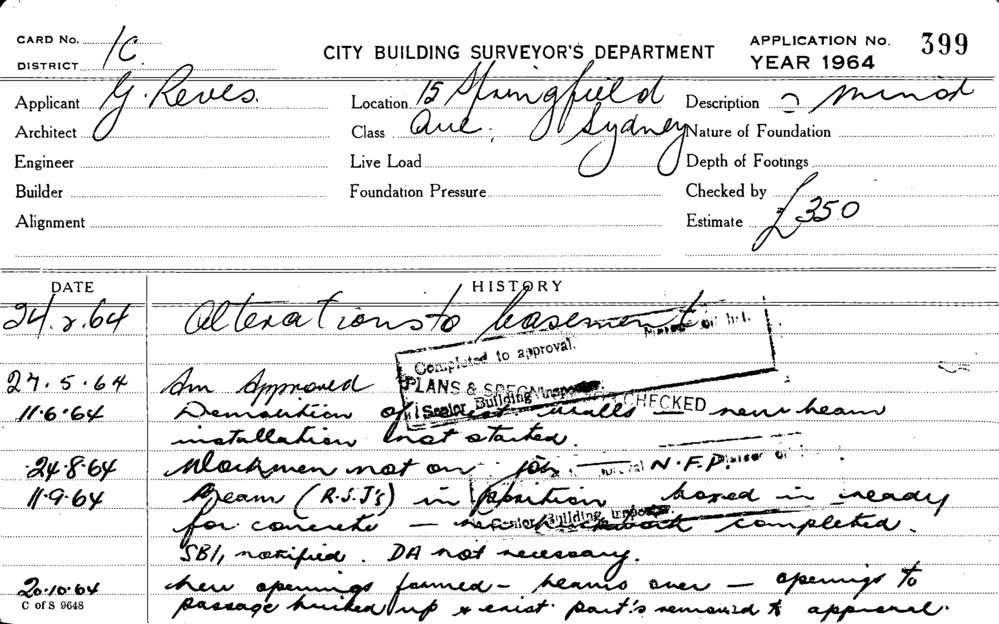 CARD No. 1C. CITY BUILDING SURVEYOR'S DEPARTMENT APPLICATION No. 399
DISTRICT YEAR 1964
Applicant G. Reves. Location 15 Springfield Description minor
Architect Class Ave. Sydney Nature of Foundation
Engineer Live Load Depth of Footings
Builder Foundation Pressure Checked by
Alignment Estimate £350
DATE HISTORY
24.2.64 Alterations to basement
Completed to approval.
27.5.64 Am Approved PLANS & SPECN
Senior Building Inspector CHECKED
11.6.64 Demolition of walls — new beam
installation not started.
24.8.64 Workmen not on job — N.F.P.
11.9.64 Beam (R.S.J's) in position boxed in ready
for concrete — completed.
Senior Building Inspector
SBI, notified. DA not necessary.
20.10.64 New openings formed - beams over - openings to
C of S 9648 passage bricked up & exist. part's removed to approval.